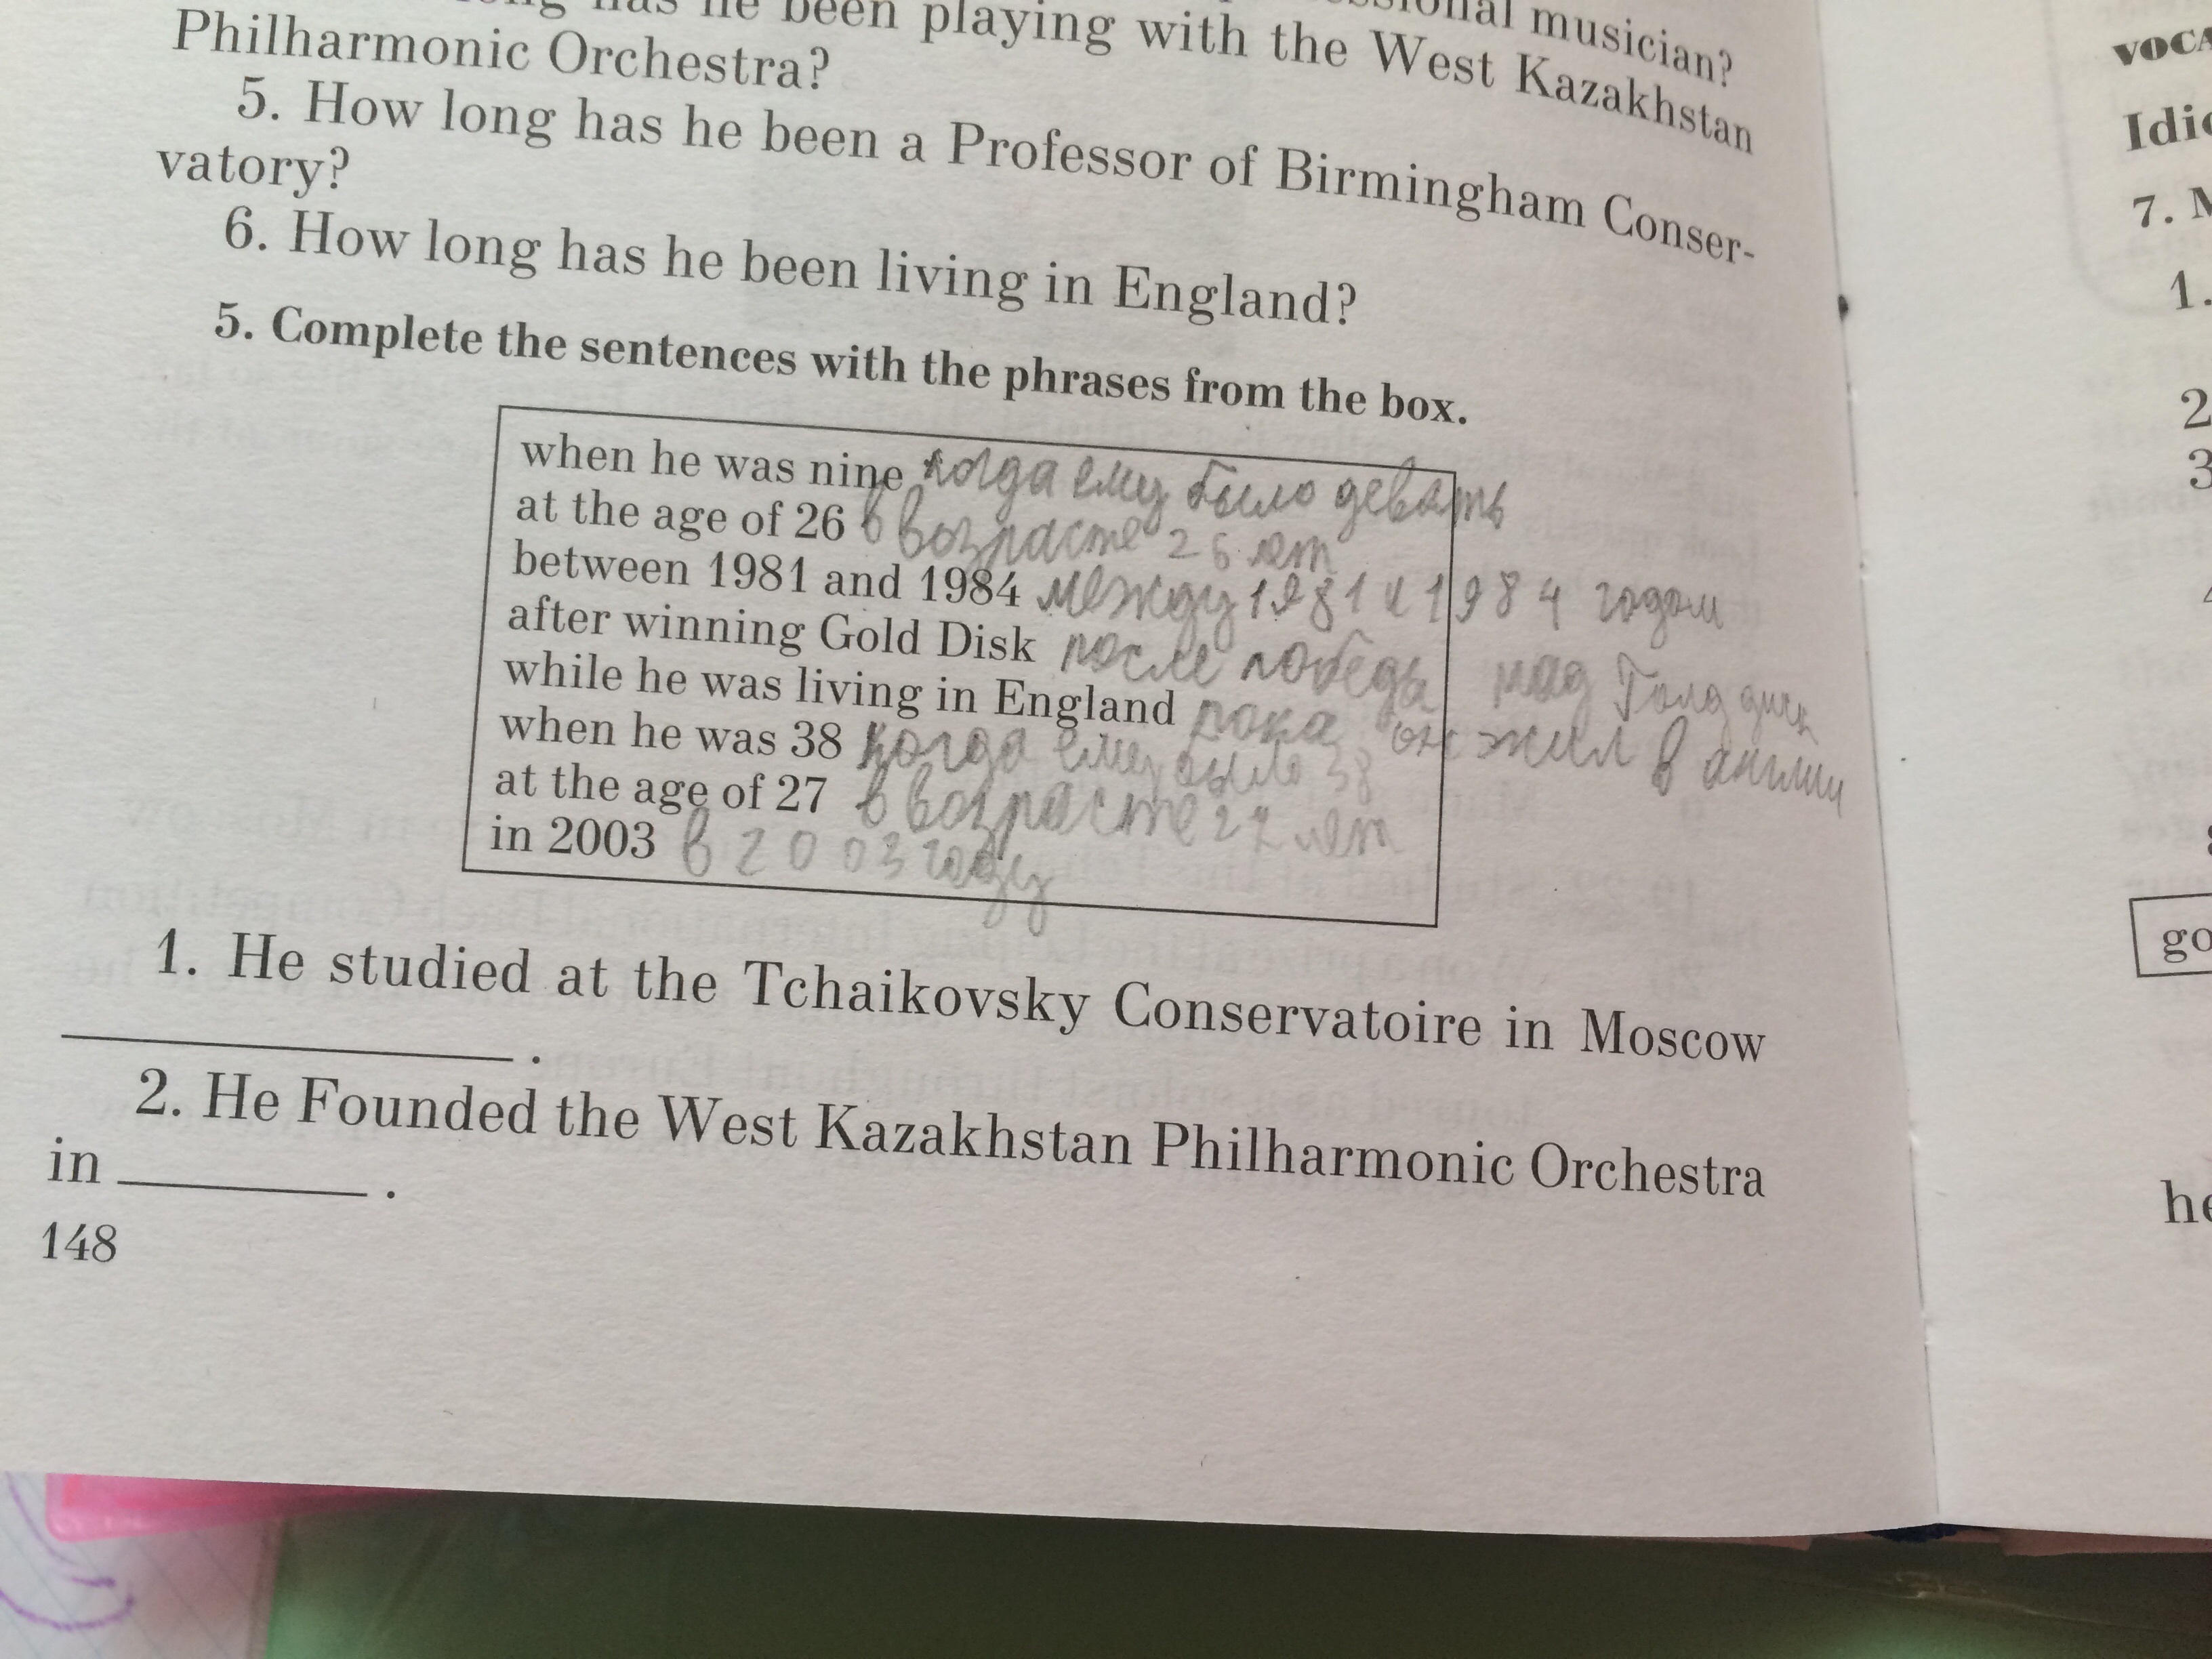 has he been playing with the West Kazakhstan
musician?
Philharmonic Orchestra?
5. How long has he been a Professor of Birmingham Conser-
vatory?
6. How long has he been living in England?
5. Complete the sentences with the phrases from the box.
when he was nine когда ему было девять
at the age of 26 в возрасте 26 лет
between 1981 and 1984 между 1981 и 1984 годом
after winning Gold Disk после победы над Голд диск
while he was living in England пока он жил в англии
when he was 38 когда ему было 38
at the age of 27 в возрасте 27 лет
in 2003 в 2003 году
1. He studied at the Tchaikovsky Conservatoire in Moscow
.
2. He Founded the West Kazakhstan Philharmonic Orchestra
in .
148
7.
1.
2
3
go